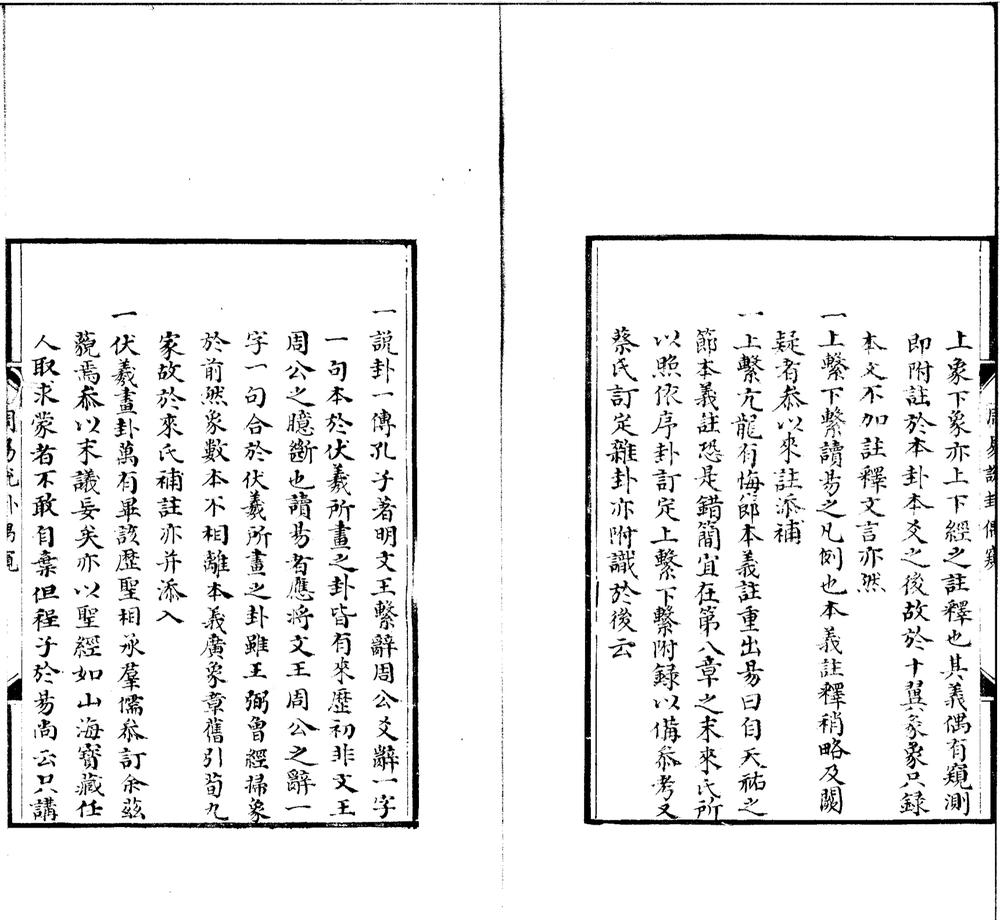 上彖下象亦上下經之註釋也其義偶有窺測
即附註於本卦本爻之後故於十翼彖象只録
本文不加註釋文言亦然
一上繫下繫讀易之凡例也本義註釋稍略及闕
疑者叅以來註添補
一上繫亢龍有悔節本義註重出易曰自天祐之
節本義註恐是錯簡宜在第八章之末來氏所
以照依序卦訂定上繫下繫附録以備叅考又
蔡氏訂定雜卦亦附識於後云
一説卦一傳孔子著明文王繫辭周公爻辭一字
一句本於伏羲所畫之卦皆有來歷初非文王
周公之臆斷也讀易者應將文王周公之辭一
字一句合於伏羲所畫之卦雖王弼曾經掃象
於前然象數本不相離本義廣象章舊引荀九
家故於來氏補註亦并添入
一伏羲畫卦萬有畢該歷聖相承羣儒叅訂余茲
藐焉叅以末議妄矣亦以聖經如山海寳藏任
人取求蒙者不敢自棄但程子於易尚云只講
周易説卦偶窺